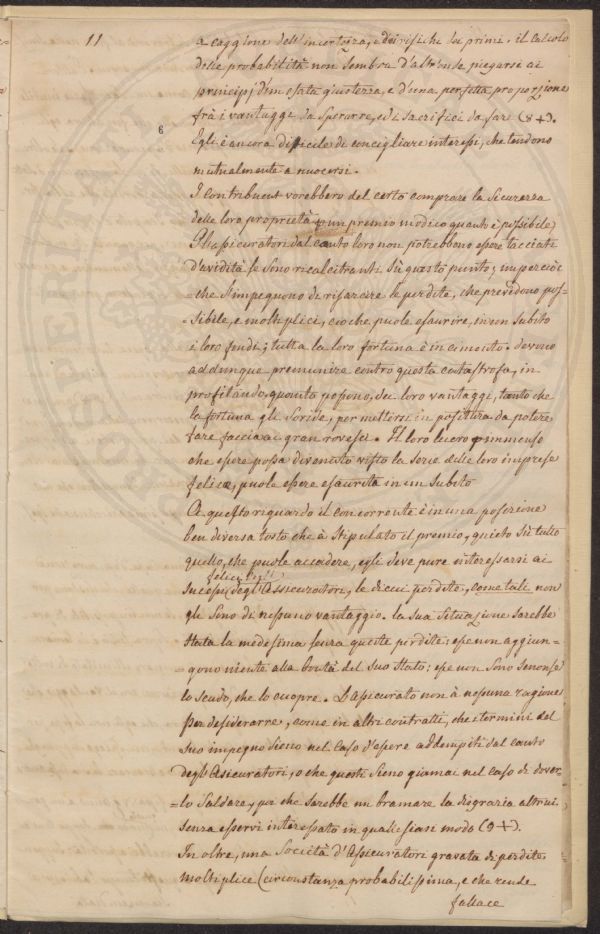 11
a caggione dell'incertezza, e dei rischi dei primi. il calcolo
delle probabilità non sembra d'altronde piegarsi ai
principj d'un esata giustezza, e d'una perfetta proporzione
frà i vantaggi da sperarre, ed i sacrifici da fare (8+).
6
Egli è ancora difficile di concigliare interessi, che tendono
mutualmente a nuocersi.
I contribuent vorebbero del certo comprare la sicurezza
delle loro proprietà p un premio modico quanto è possibile;
Gl'assicuratori dal canto loro non potrebbono essere tacciati
d'avidità se sono ricalcitranti sù questo punto; imperciòc
=che s'impegnono di risarcire le perdite, che previdono pos=
=sibile, e moltiplici, cioche puole esaurire, in un subito
i loro fondi; tutta la loro fortuna è in cimento. devono
addunque premunirse contro questa catastrofa, in
profitando, quanto possono, dei loro vantaggi, tanto che
la fortuna gli soride, per mettersi in positura da potere
fare faccia ai gran rovesci. Il loro lucro immenso
che essere possa divenuto visto la serie delle loro imprese
felice, puole essere esaurita in un subito
A questo riguardo il concorrente è in una posizione
ben diversa tosto che à stipulato il premio, quieto sù tutto
quello, che puole accadere, egli deve pure interessarsi ai
felici degl'
sucessi degl'Assicuratori, le dicui perdite, come tali non
gli sono di nessuno vantaggio. la sua situazione sarebbe
stata la medesima senza queste perdite: esse non aggiun=
=gono niente alla bontà del suo stato: esse non sono senonse
lo scudo, che lo cuopre. L'assicurato non à nessuna ragione
per desiderarre, come in altri contratti, che i termini del
suo impegno sieno nel caso d'essere addempiti dal canto
degl'Assicuratori, o che questi sieno giamai nel caso di dover=
=lo saldare, per che sarebbe un bramare la disgrazia altrui,
senza esservi interessato in qualsisiasi modo (9+).
In oltre, una Società d'Assicuratori gravata di perdite
moltiplice (circonstanza probabilissima, e che rende
fallace